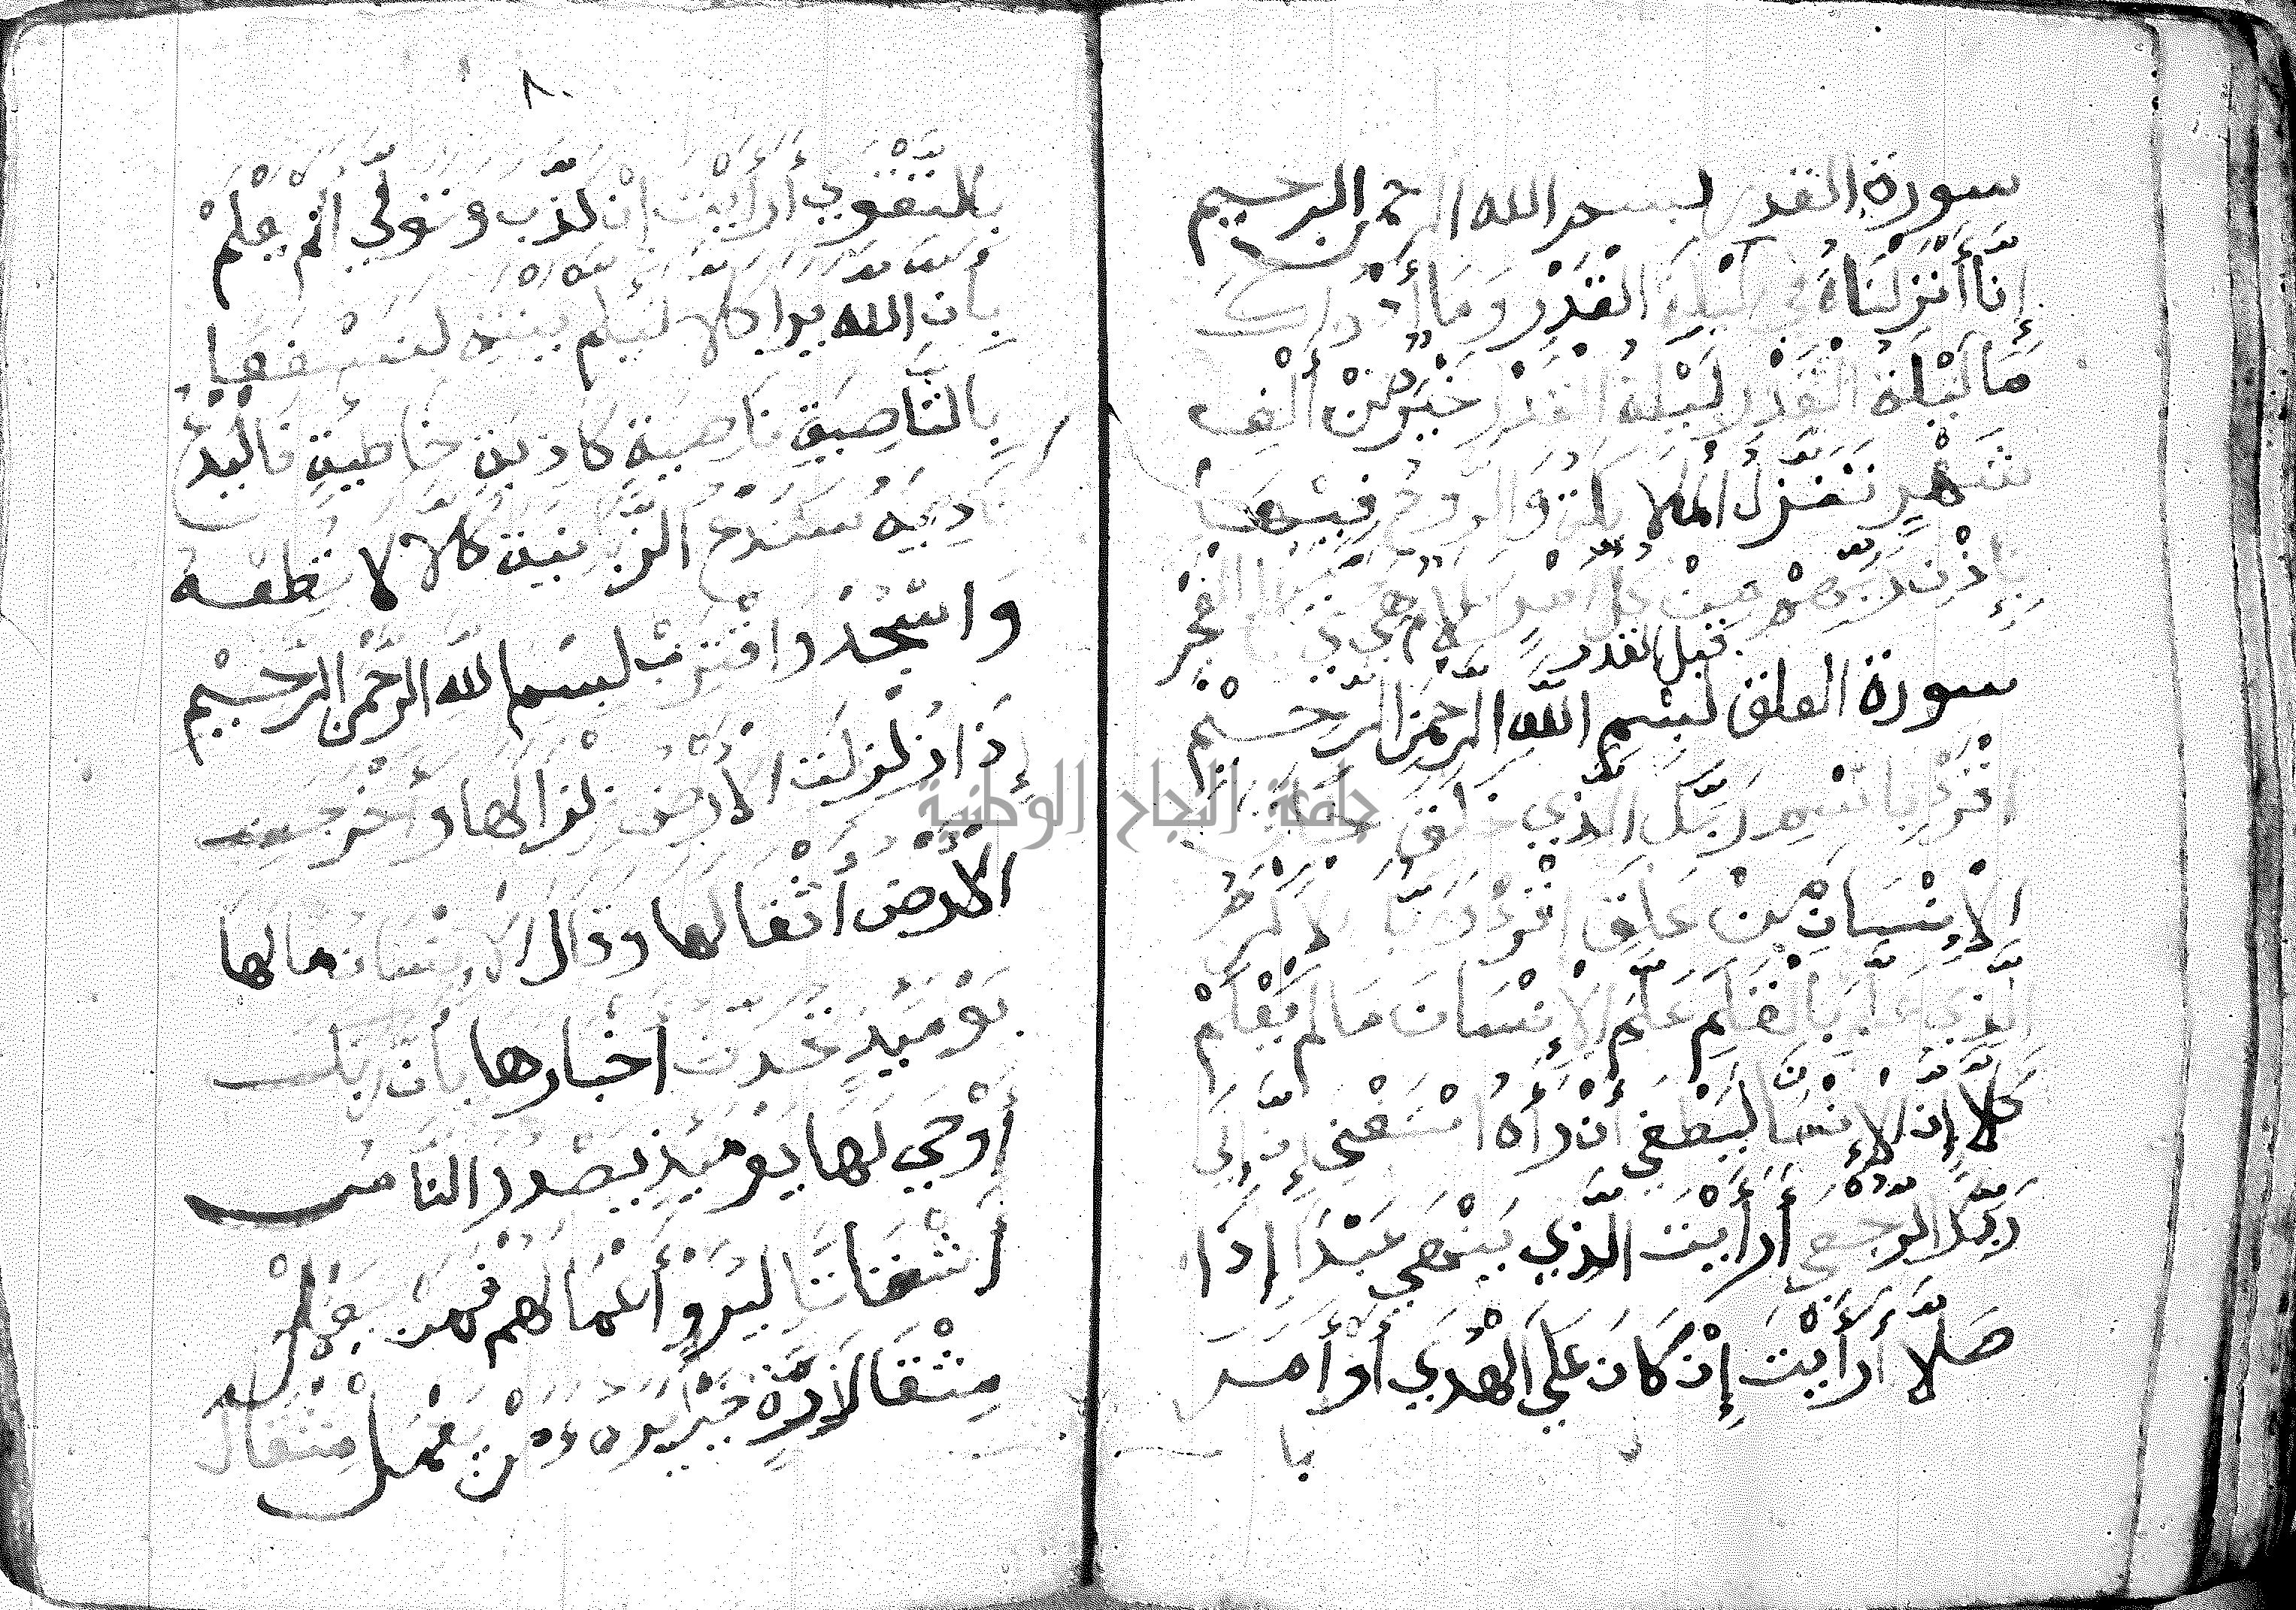 سورة القدر بسم الله الرحمن الرحيم
إِنَّا أَنْزَلْنَاهُ فِي لَيْلَةِ الْقَدْرِ وَمَا أَدْرَاكَ
مَا لَيْلَةُ الْقَدْرِ لَيْلَةُ الْقَدْرِ خَيْرٌ مِنْ أَلْفِ
شَهْرٍ تَنَزَّلُ الْمَلَائِكَةُ وَالرُّوحُ فِيهَا
بِإِذْنِ رَبِّهِمْ مِنْ كُلِّ أَمْرٍ سَلَامٌ هِيَ الْفَجْرِ
قبل القدر
سورة العلق بِسْمِ اللَّهِ الرَّحْمَنِ الرَّحِيمِ
اقْرَأْ بِاسْمِ رَبِّكَ الَّذِي خَلَقَ خَلَقَ
الْإِنْسَانَ مِنْ عَلَقٍ اقْرَأْ وَرَبُّكَ الْأَكْرَمُ
الَّذِي عَلَّمَ بِالْقَلَمِ عَلَّمَ الْإِنْسَانَ مَا لَمْ يَعْلَمْ
كَلَّا إِنَّ الْإِنْسَانَ لَيَطْغَى أَنْ رَآهُ اسْتَغْنَى إِنَّ إِلَى
رَبِّكَ الرُّجْعَى أَرَأَيْتَ الَّذِي يَنْهَى عَبْدًا إِذَا
صَلَّى أَرَأَيْتَ إِنْ كَانَ عَلَى الْهُدَى أَوْ أَمَرَ
با
٨٠
بِالتَّقْوَى أَرَأَيْتَ إِنْ كَذَّبَ وَتَوَلَّى أَلَمْ يَعْلَمْ
بِأَنَّ اللَّهَ يَرَى كَلَّا لَئِنْ لَمْ يَنْتَهِ لَنَسْفَعًا
بِالنَّاصِيَةِ نَاصِيَةٍ كَاذِبَةٍ خَاطِئَةٍ فَلْيَدْعُ
نَادِيَهُ سَنَدْعُ الزَّبَانِيَةَ كَلَّا لَا تُطِعْهُ
وَاسْجُدْ وَاقْتَرِبْ بِسْمِ اللَّهِ الرَّحْمَنِ الرَّحِيمِ
إِذَا زُلْزِلَتِ الْأَرْضُ زِلْزَالَهَا وَأَخْرَجَتِ
الْأَرْضُ أَثْقَالَهَا وَقَالَ الْإِنْسَانُ مَا لَهَا
يَوْمَئِذٍ تُحَدِّثُ أَخْبَارَهَا بِأَنَّ رَبَّكَ
أَوْحَى لَهَا يَوْمَئِذٍ يَصْدُرُ النَّاسُ
أَشْتَاتًا لِيُرَوْا أَعْمَالَهُمْ فَمَنْ يَعْمَلْ
مِثْقَالَ ذَرَّةٍ خَيْرًا يَرَهُ وَمَنْ يَعْمَلْ مِثْقَالَ
جامعة النجاح الوطنية